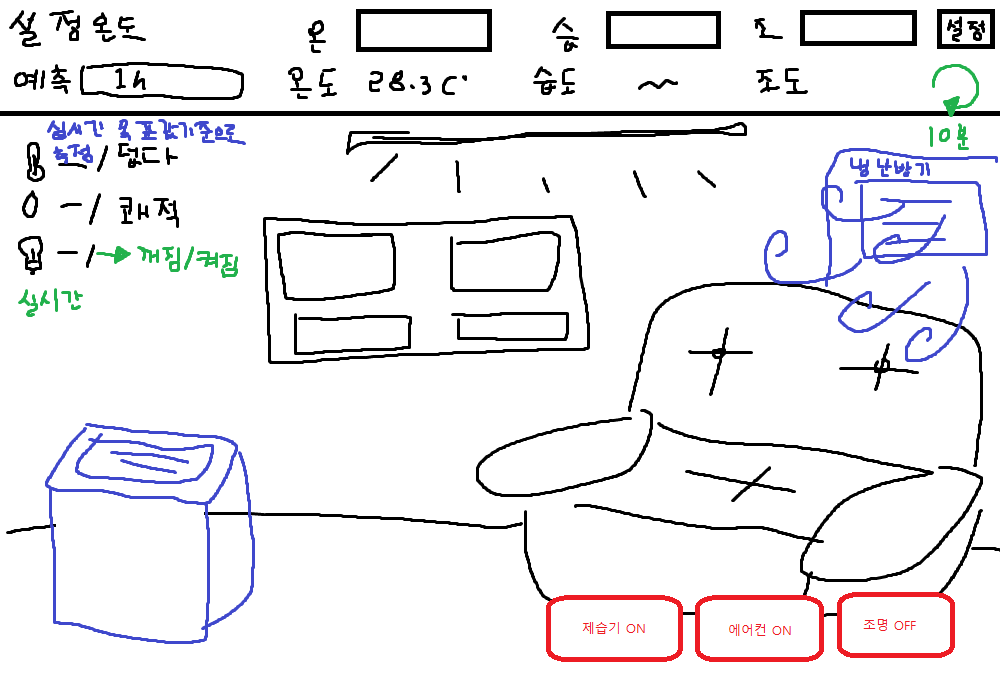 설정온도 온 습 조 설정
예측 1h 온도 28.3C° 습도 ~ 조도
10분
실시간 목표값기준으로
측정
- / 덥다
- / 쾌적
- / → 꺼짐/켜짐
실시간
냉난방기
제습기 ON 에어컨 ON 조명 OFF